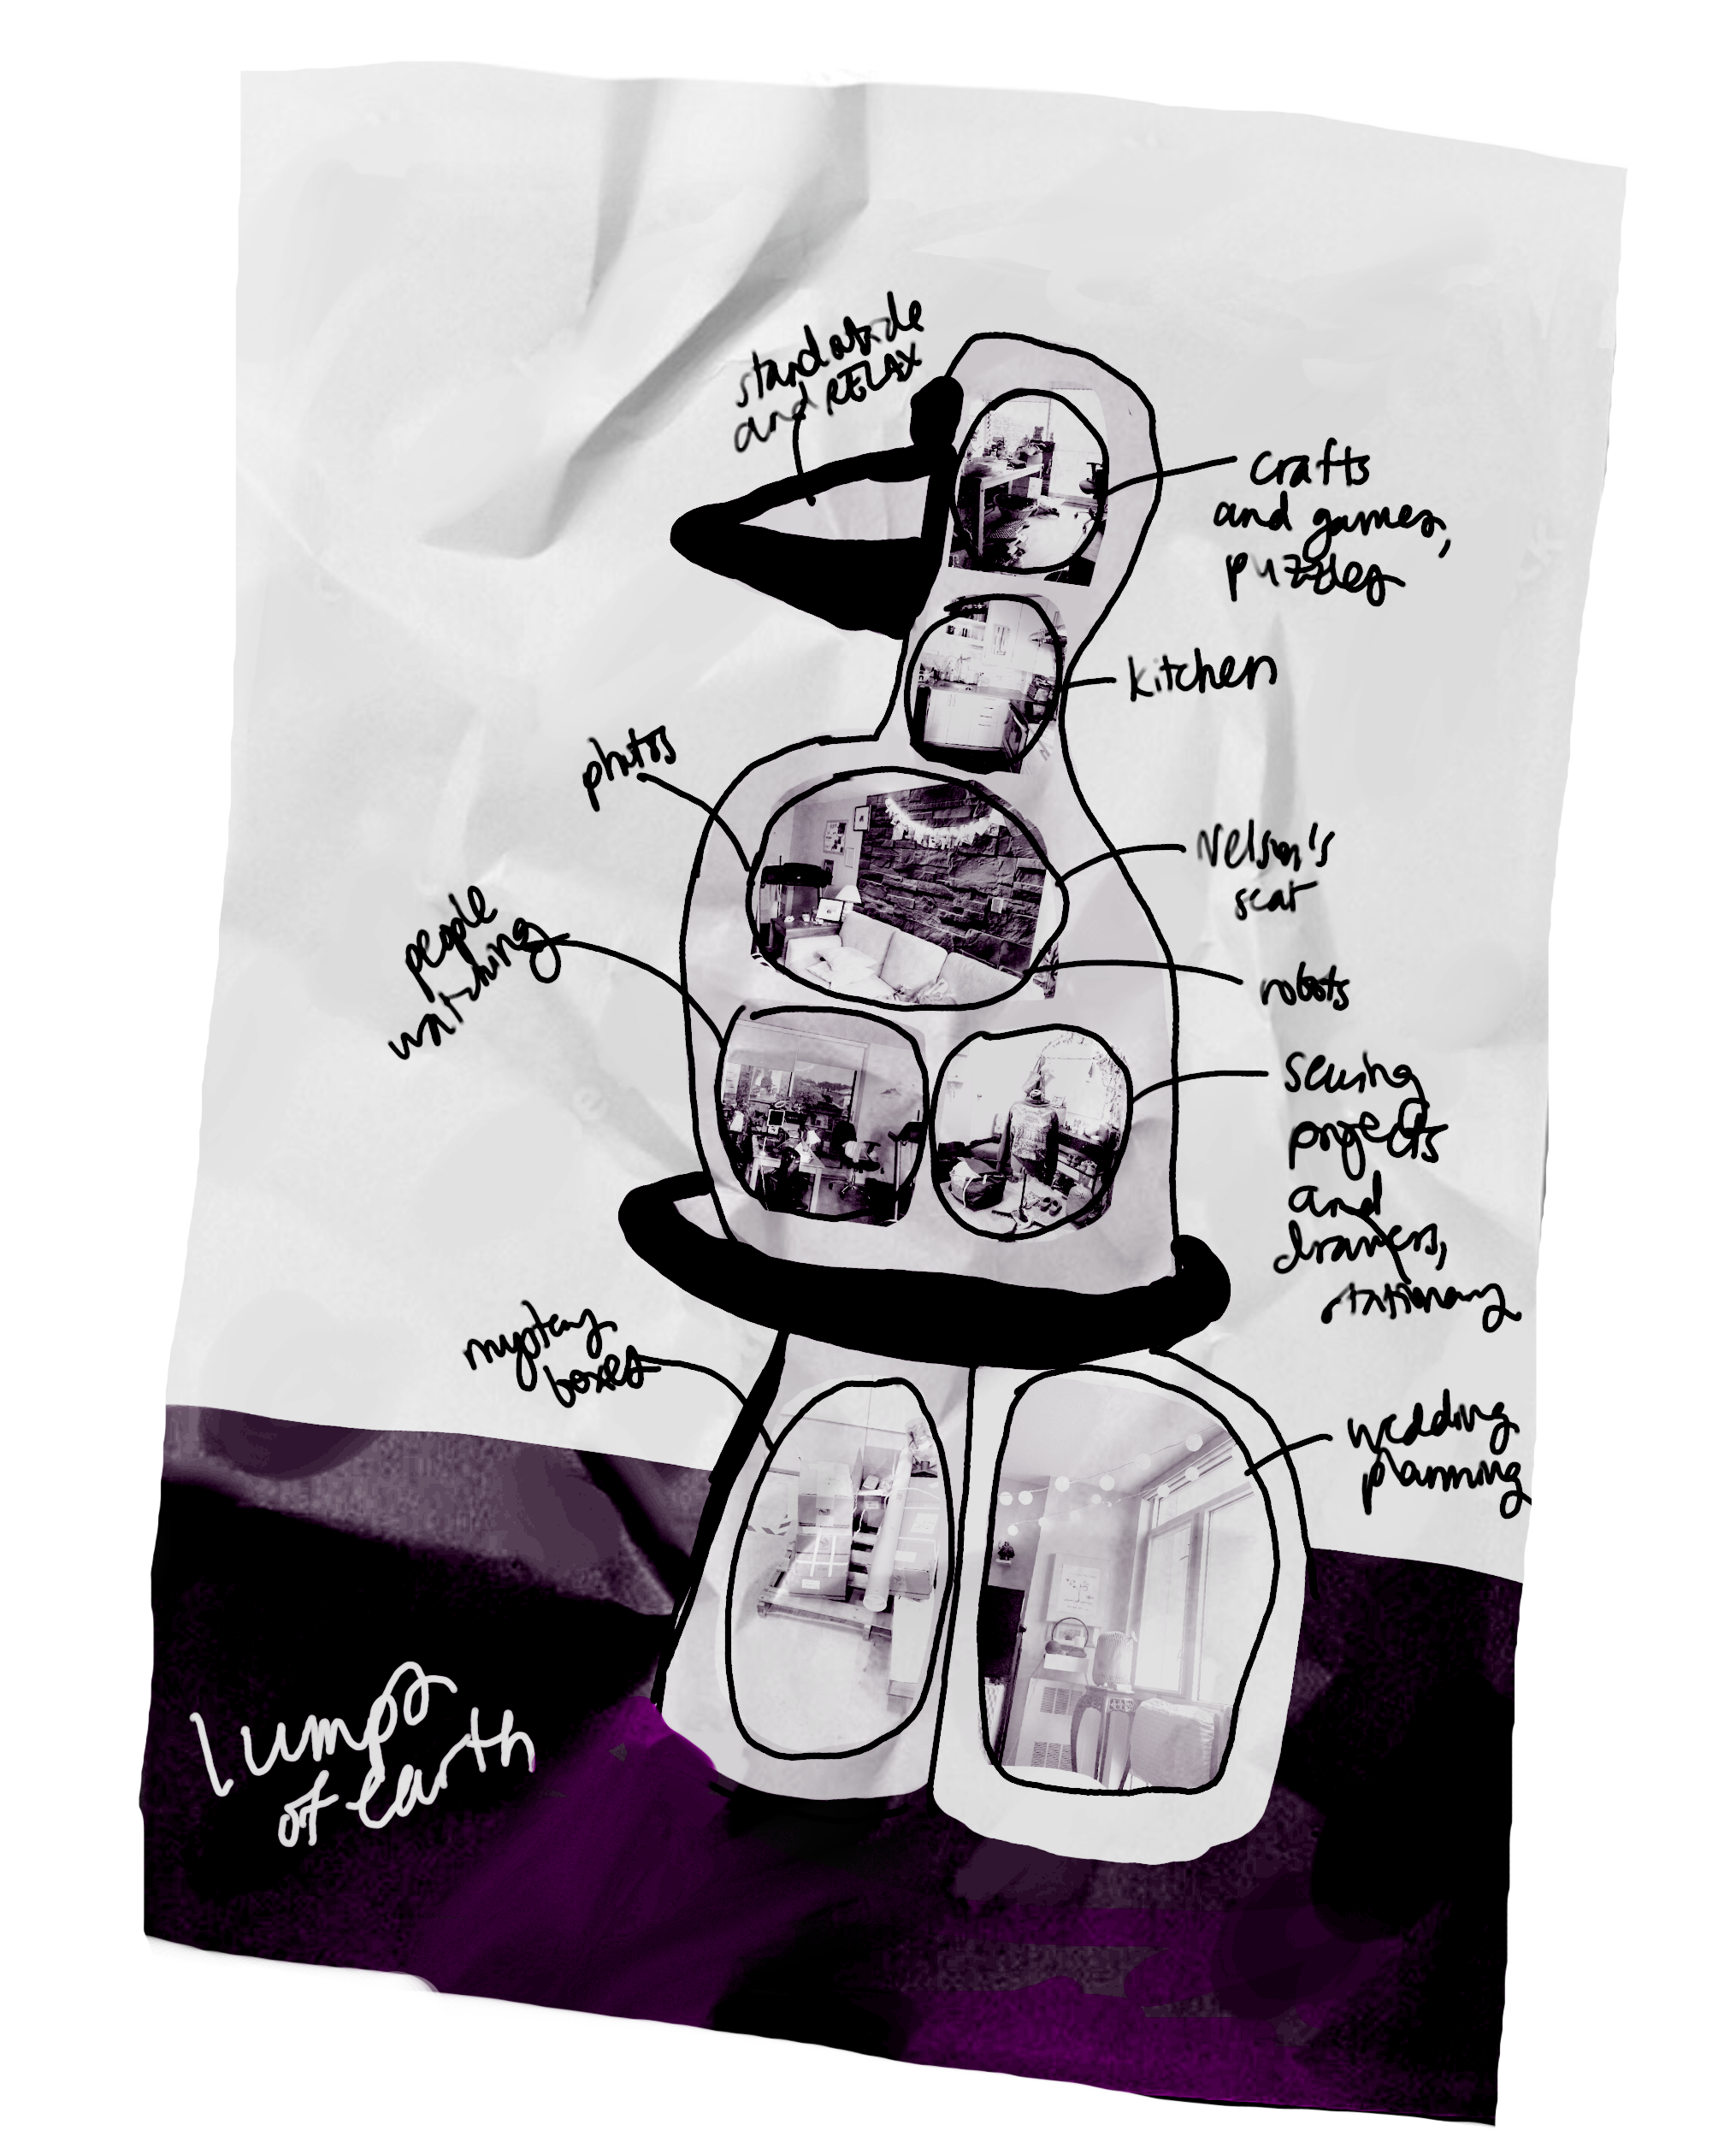 stand outside
and RELAX
crafts
and games,
puzzles
kitchen
photos
Nelson's
seat
people
watching
robots
sewing
projects
and
drawers,
stationary
mystery
boxes
wedding
planning
lumps
of earth